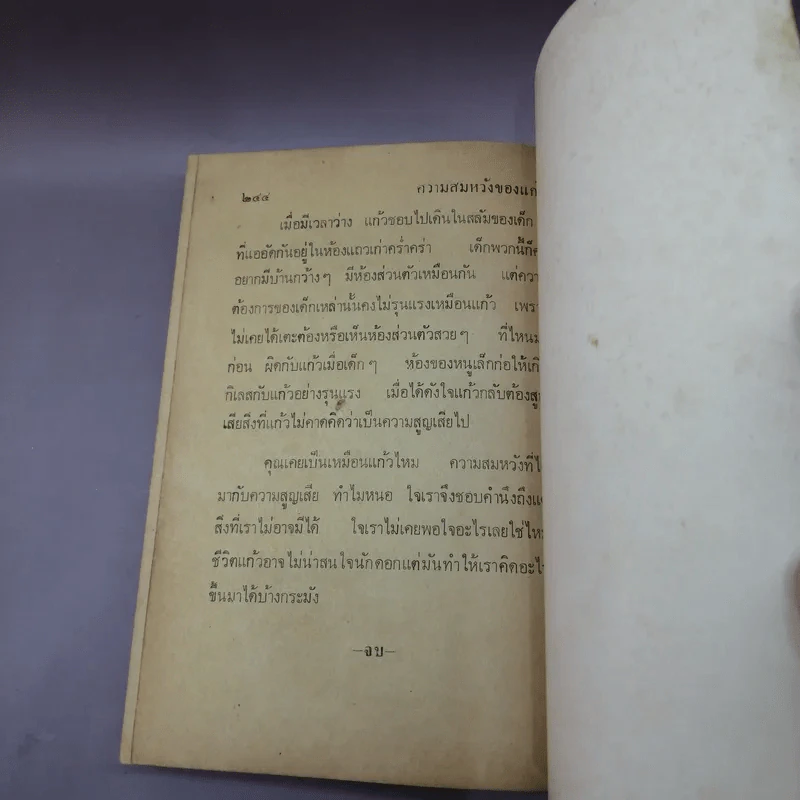 ๒๔๔ ความสมหวังของแก้
เมื่อมีเวลาว่าง แก้วชอบไปเดินในสลัมของเด็ก
ที่แออัดกันอยู่ในห้องแถวเก่าคร่ำคร่า เด็กพวกนี้ก็ค
อยากมีบ้านกว้างๆ มีห้องส่วนตัวเหมือนกัน แต่ควา
ต้องการของเด็กเหล่านั้นคงไม่รุนแรงเหมือนแก้ว เพรา
ไม่เคยได้เตะต้องหรือเห็นห้องส่วนตัวสวยๆ ที่ไหนม
ก่อน ผิดกับแก้วเมื่อเด็กๆ ห้องของหนูเล็กก่อให้เกิ
กิเลสกับแก้วอย่างรุนแรง เมื่อได้ดังใจแก้วกลับต้องสูญ
เสียสิ่งที่แก้วไม่คาดคิดว่าเป็นความสูญเสียไป
คุณเคยเป็นเหมือนแก้วไหม ความสมหวังที่ไ
มากับความสูญเสีย ทำไมหนอ ใจเราจึงชอบคำนึงถึงแต่
สิ่งที่เราไม่อาจมีได้ ใจเราไม่เคยพอใจอะไรเลยใช่ไหม
ชีวิตแก้วอาจไม่น่าสนใจนักดอกแต่มันทำให้เราคิดอะไร
ขึ้นมาได้บ้างกระมัง
—จบ—